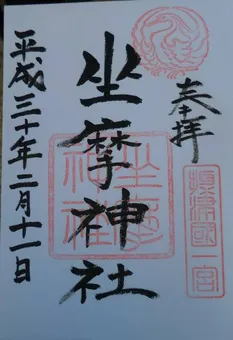 奉拝
摂津國一宮
坐摩神社
坐摩神社
平成三十年二月十一日